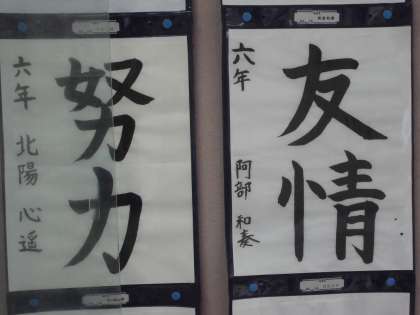 努力
六年 北陽 心遥
友情
六年 阿部 和奏